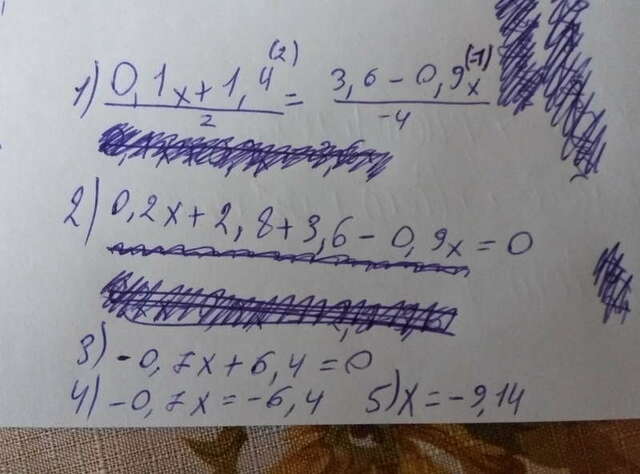 1) 0,1x+1,4 (2) / 2 = 3,6-0,9x (-1) / -4
2) 0,2x+2,8+3,6-0,9x=0
3) -0,7x+6,4=0
4) -0,7x=-6,4 5) x=-9,14